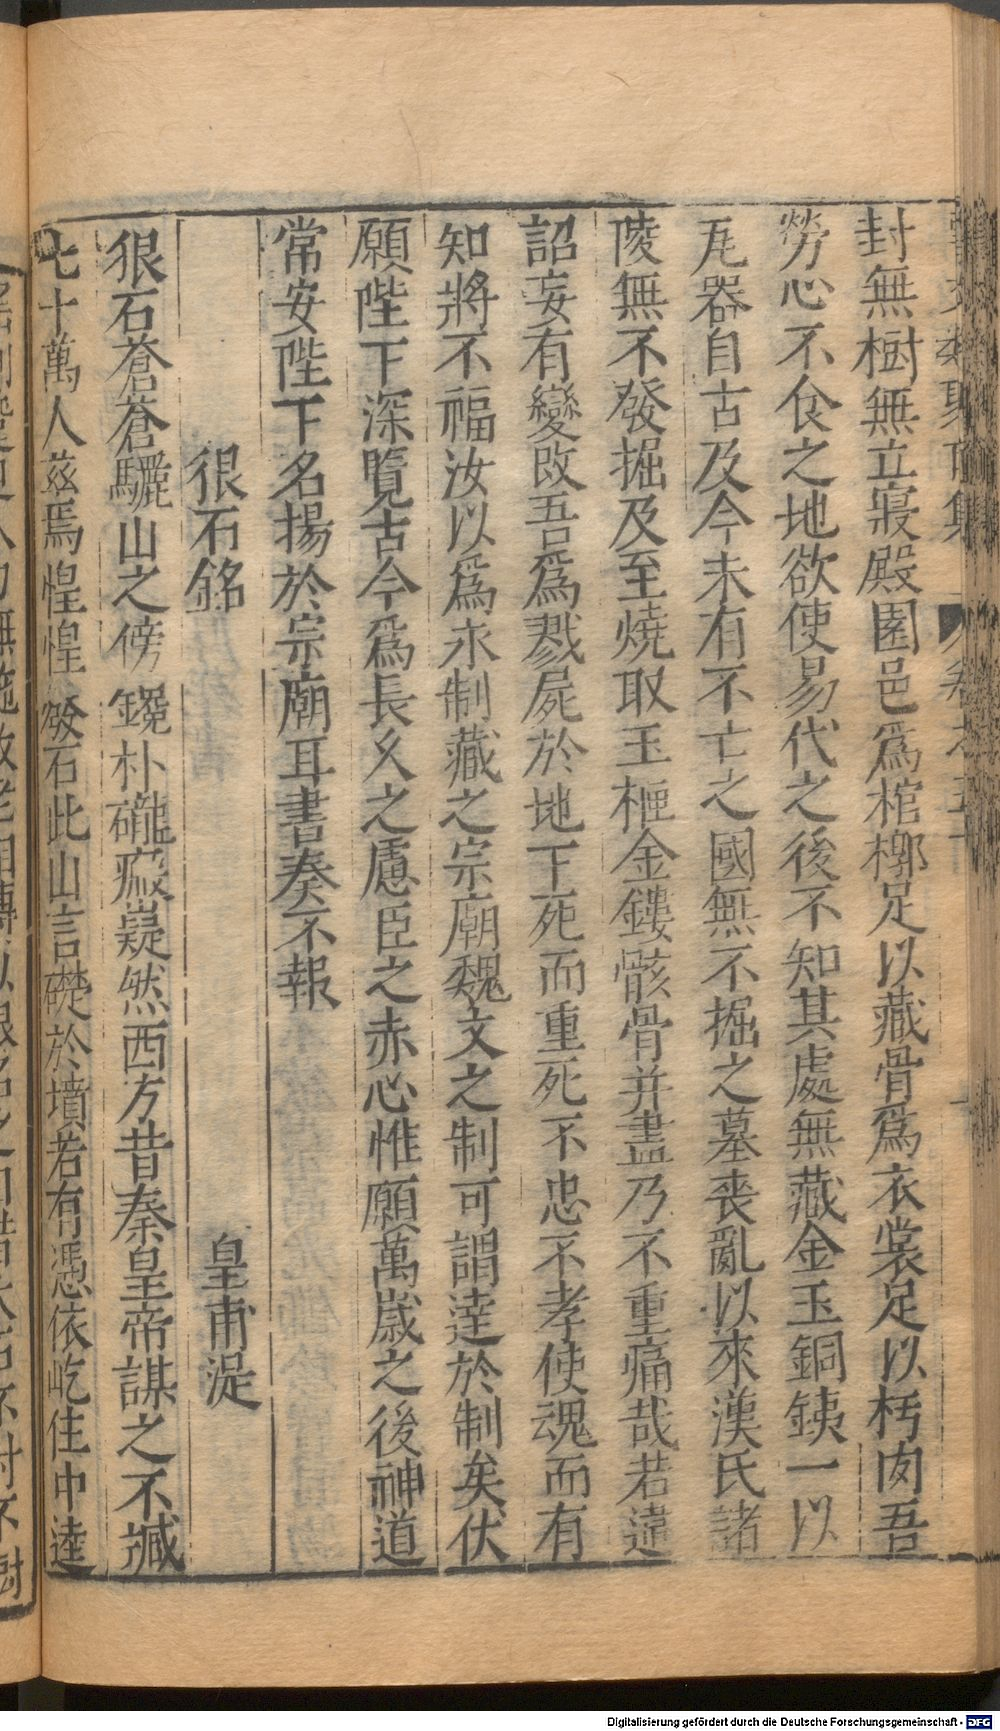 封無樹無立寢殿園邑爲棺槨足以藏骨爲衣裳足以朽肉吾
勞心不食之地欲使易代之後不知其處無藏金玉銅銕一以
瓦器自古及今未有不亡之國無不掘之墓喪亂以來漢氏諸
陵無不發掘及至燒取玉柙金鏤骸骨并盡乃不重痛哉若違
詔妄有變改吾爲戮屍於地下死而重死不忠不孝使魂而有
知將不福汝以爲永制藏之宗廟魏文之制可謂達於制矣伏
願陛下深覽古今爲長久之慮臣之赤心惟願萬歲之後神道
常安陛下名揚於宗廟耳書奏不報
很石銘
皇甫湜
狠石蒼蒼驪山之傍鑱朴礲嶷然西方昔秦皇帝謀之不臧
七十萬人茲焉惶惶發石此山言礎於墳若有憑依屹住中逵
Digitalisierung gefördert durch die Deutsche Forschungsgemeinschaft - DFG